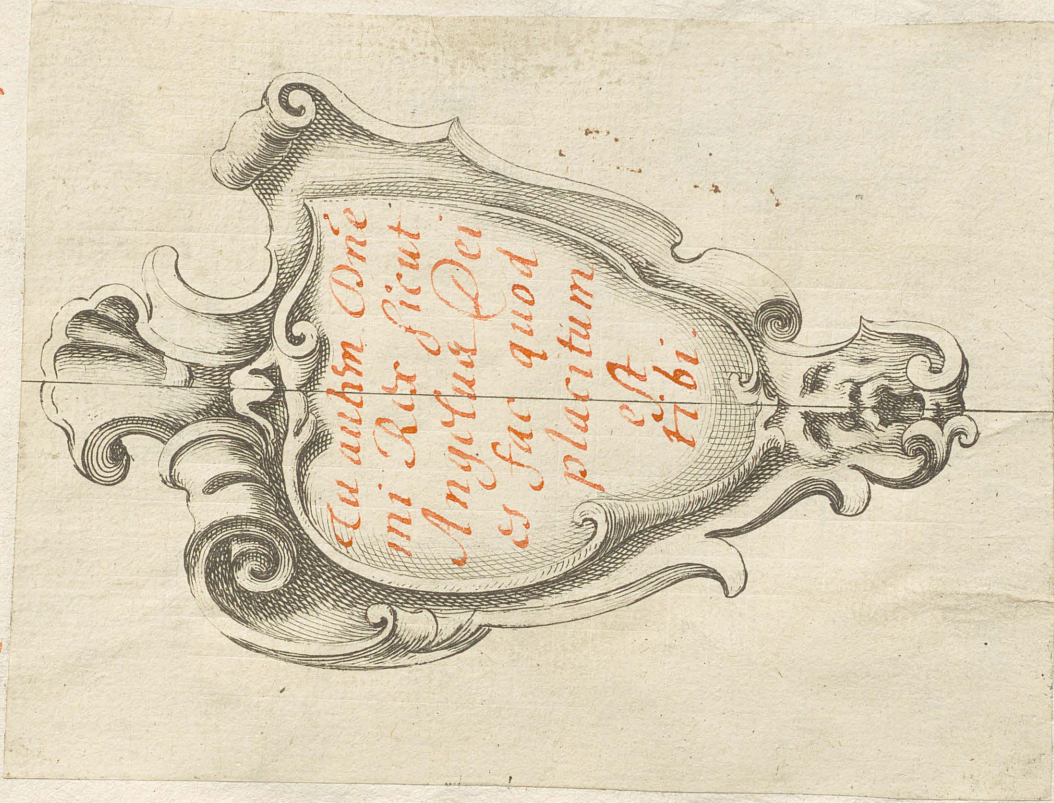 Tu autem Dn̄e
mi Rex ſicut
Angelus Dei
es fac quod
placitum
eſt
tibi.